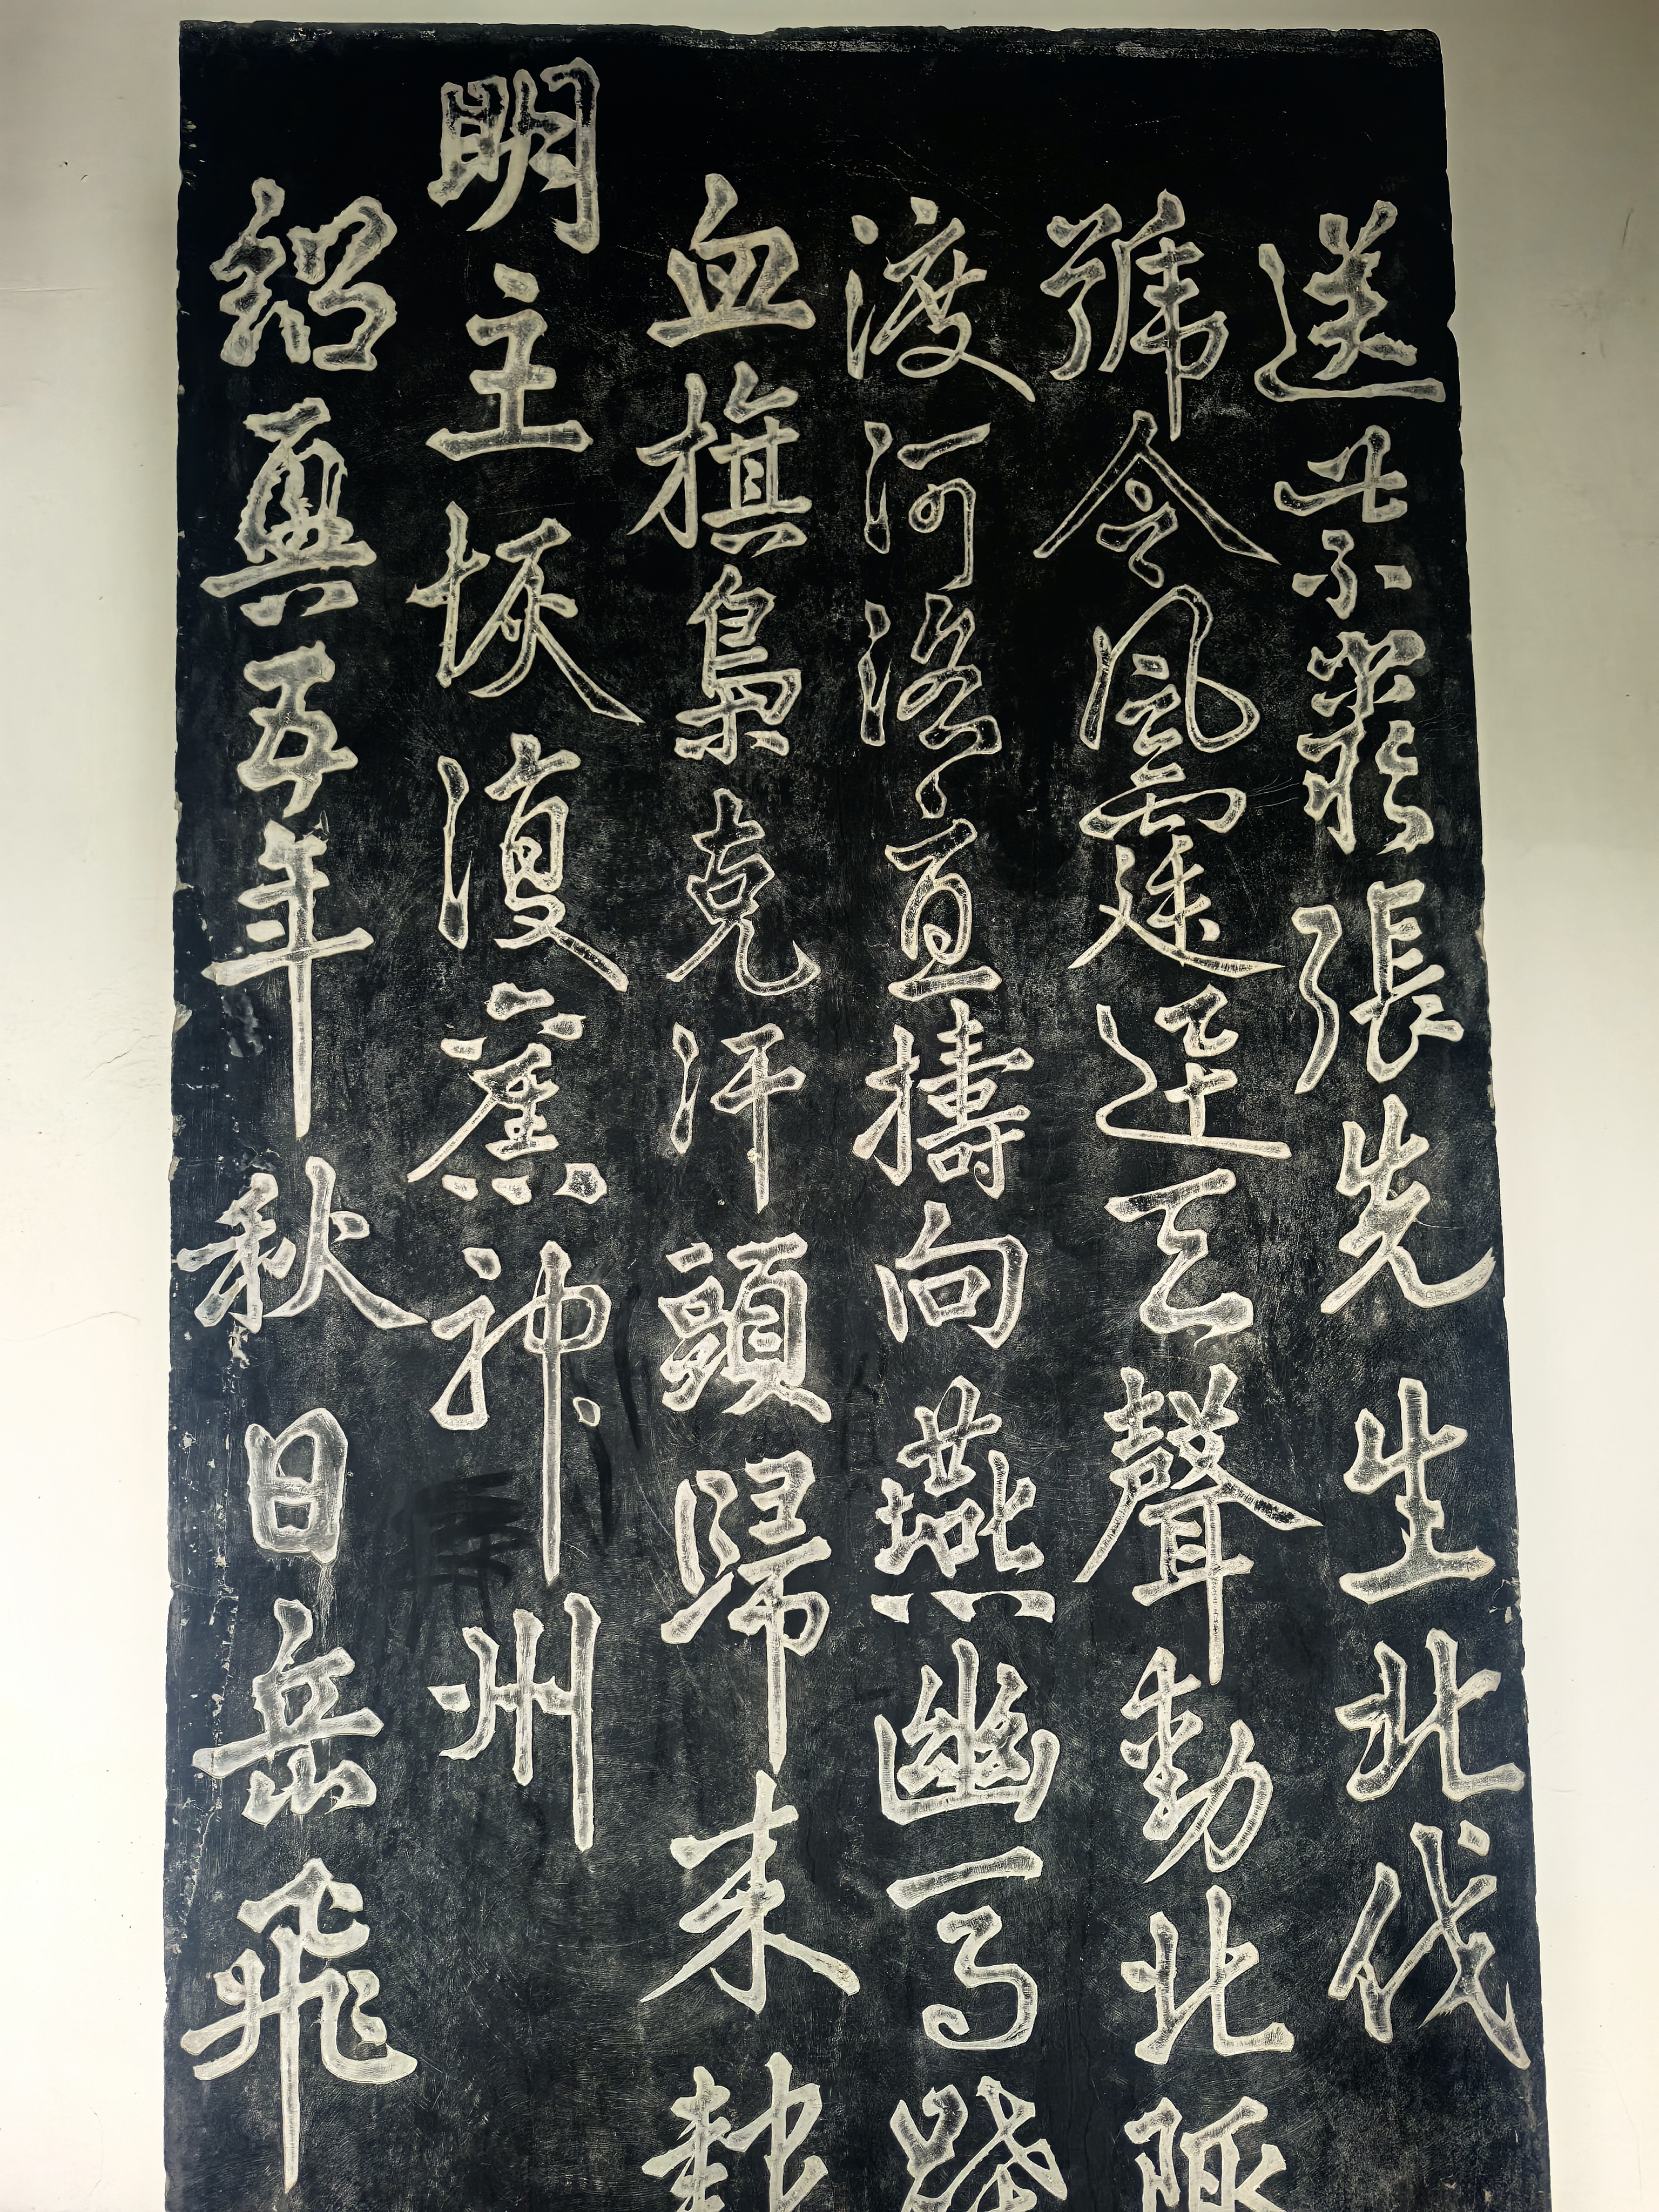 送紫巖張先生北伐
號令風霆迅天聲動北陬
渡河洛直擣向燕幽馬蹀
血旗梟克汗頭歸来報
明主恢復舊神州
紹興五年秋日岳飛